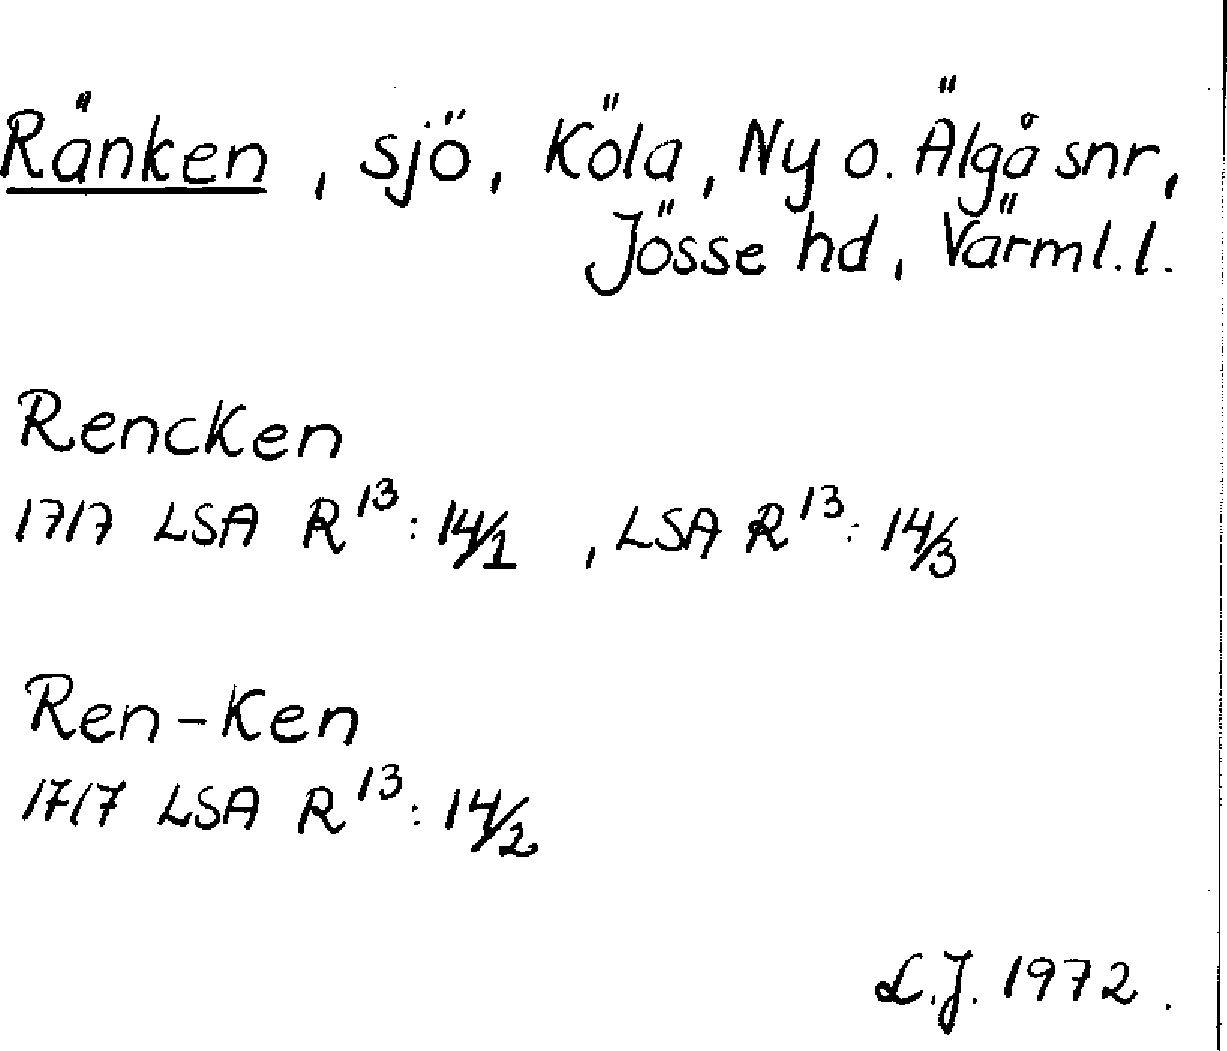 Ränken, sjö, Köla, Ny o. Älgå snr,
Jösse hd, Värml.l.
Rencken
1717 LSA R¹³: 14/1, LSA R¹³: 14/3
Ren-Ken
1717 LSA R¹³: 14/2
L.J. 1972.